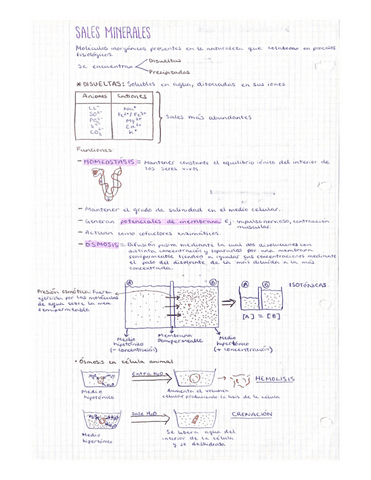 SALES MINERALES
Moléculas inorgánicas presentes en la naturaleza que colaboran en procesos
fisiológicos.
Se encuentran
Disueltas
Precipitadas
* DISUELTAS: Solubles en agua, disociadas en sus iones
Aniones Cationes
Cl⁻ Na⁺
Mg²⁺
Ca²⁺
K⁺
Sales más abundantes
Funciones:
- HOMEOSTASIS = Mantener constante el equilibrio iónico del interior de
los seres vivos
- Mantener el grado de salinidad en el medio celular.
- Generan potenciales de membrana Ej: impulso nervioso, contracción
muscular.
- Actúan como cofactores enzimáticos
- ÓSMOSIS = Difusión pasiva mediante la cual dos disoluciones con
distinta concentración y separadas por una membrana
semipermeable tienden a igualar sus concentraciones mediante
el paso del disolvente de la más diluida a la más
concentrada.
Presión osmótica: fuerza
ejercida por las moléculas
de agua sobre la mb
semipermeable
A B
A B
ISOTÓNICAS
[A] = [B]
Medio
hipotónico
(- concentración)
Membrana
Semipermeable
Medio
hipertónico
(+ concentración)
· Ósmosis en célula animal
Entra H₂O
HEMOLISIS
Medio
hipotónico
Aumenta el volumen
celular produciendo la lisis de la célula
Sale H₂O
CRENACIÓN
Medio
hipertónico
Se libera agua del
interior de la célula
y se deshidrata